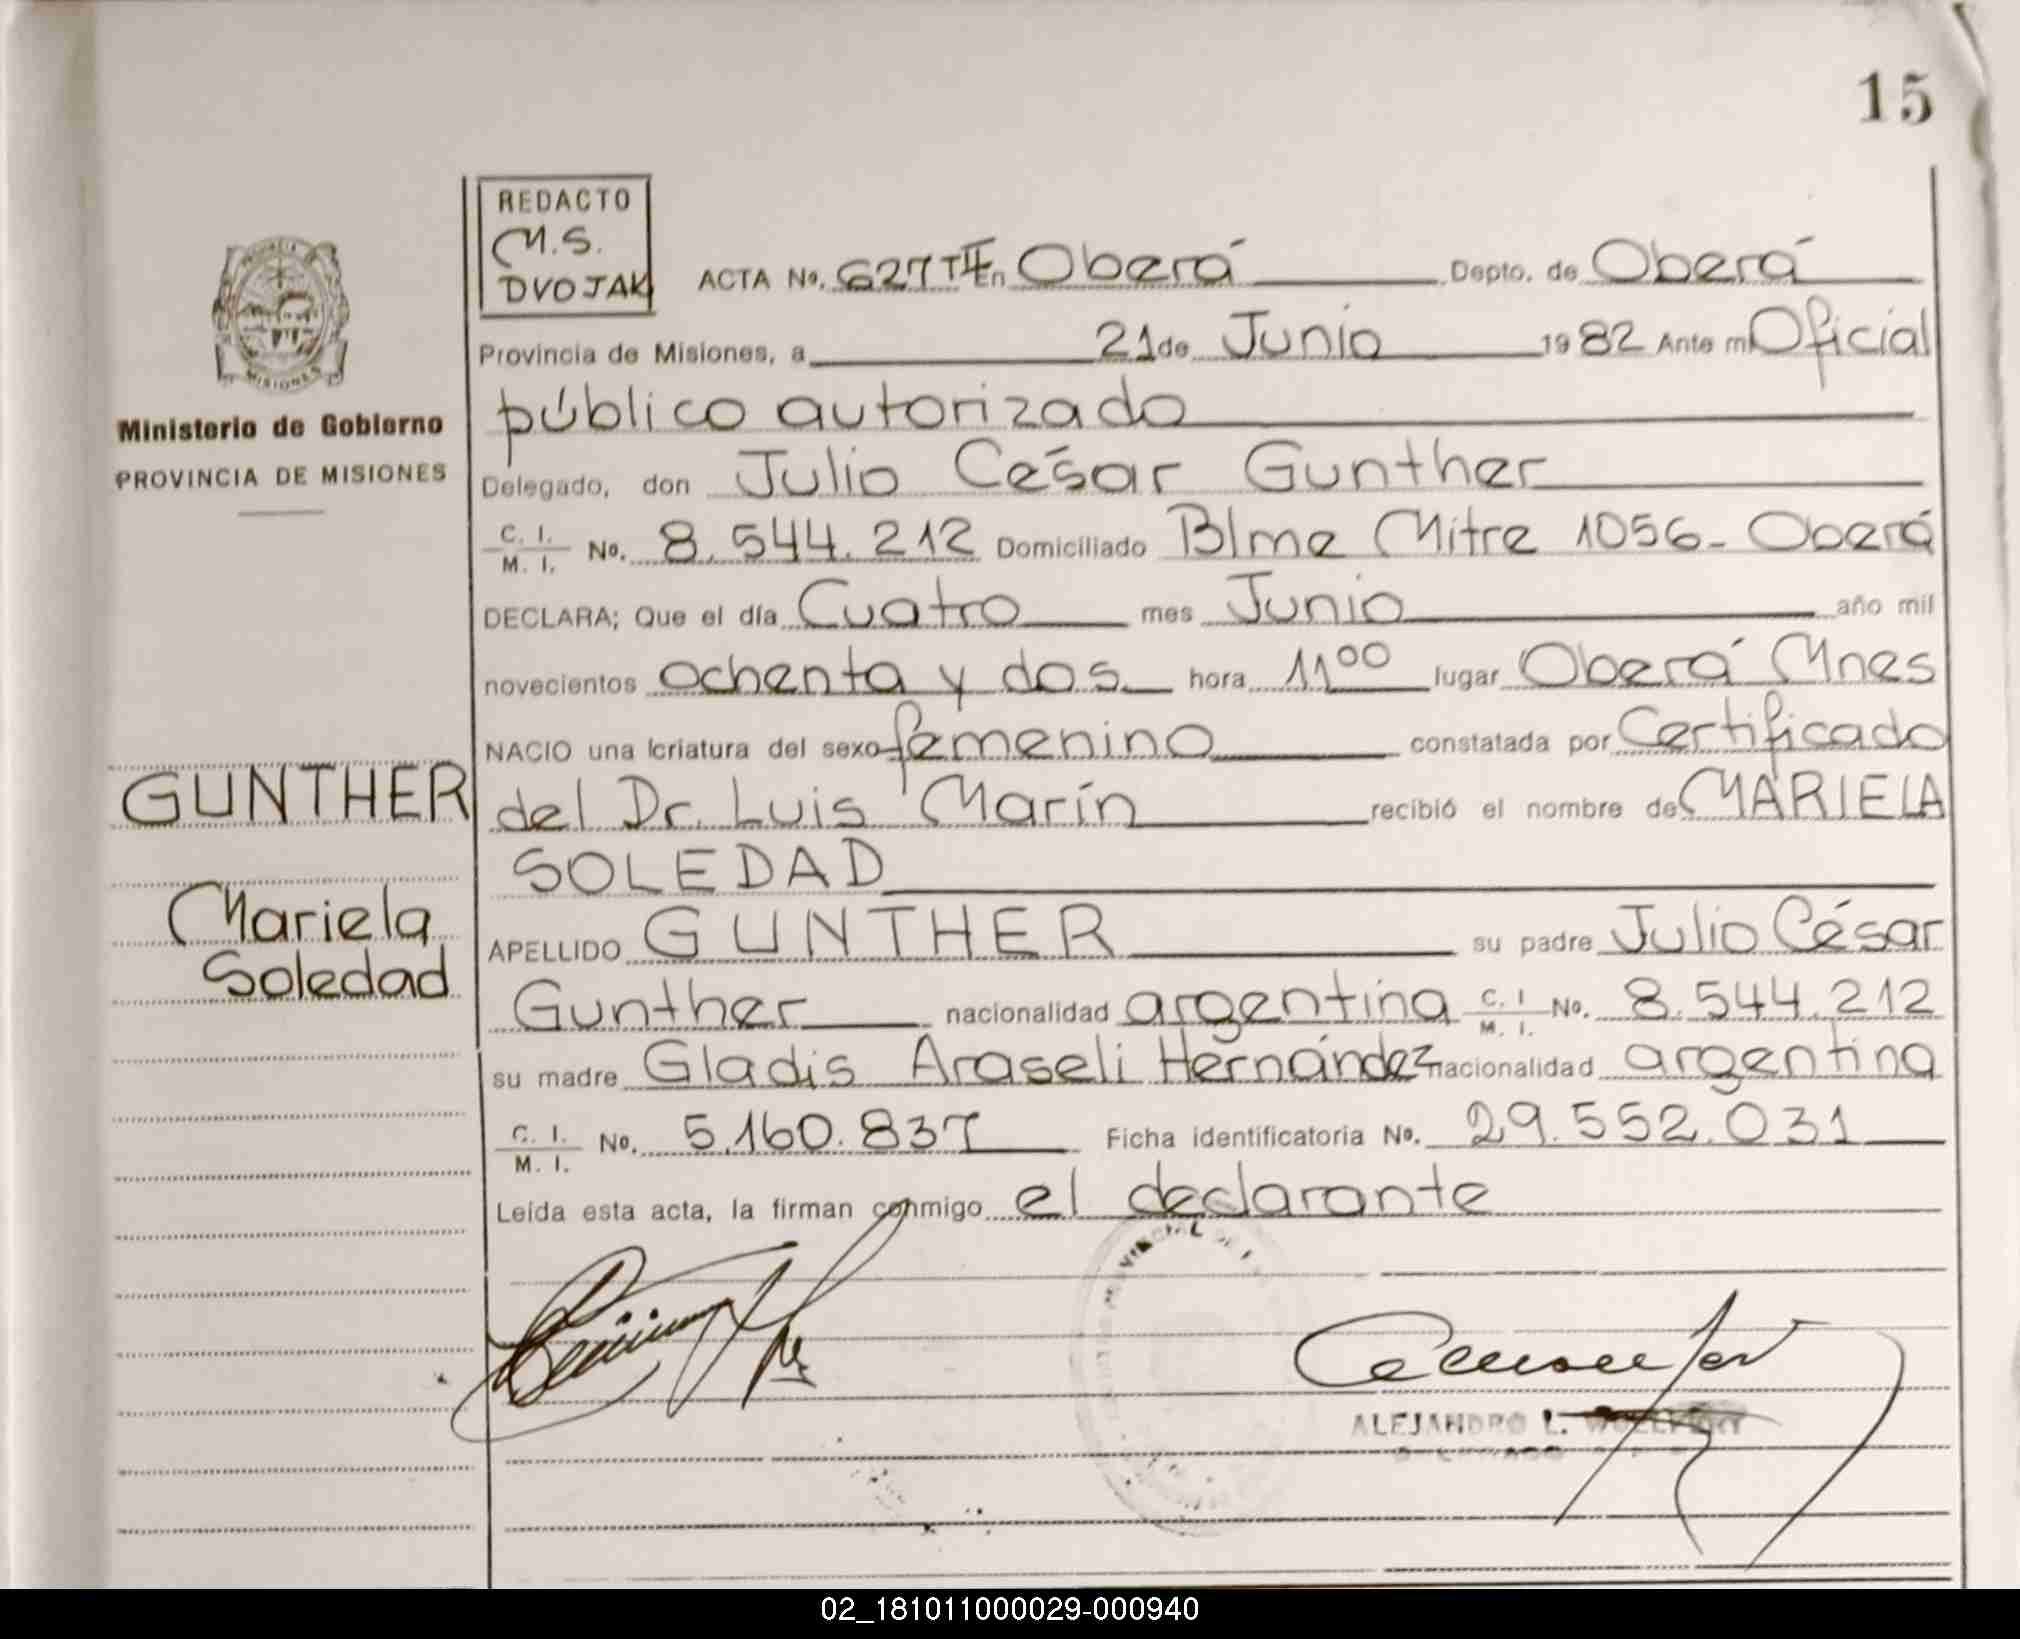 15
REDACTO
M.S.
DVOJAK
ACTA No. 627 TII En Oberá Depto. de Oberá
Provincia de Misiones, a 21 de Junio 1982 Ante mí Oficial
público autorizado
Delegado, don Julio César Gunther
C. I. M. I. No. 8.544.212 Domiciliado Blme Mitre 1056- Oberá
DECLARA; Que el día Cuatro mes Junio año mil
novecientos ochenta y dos hora 11 00 lugar Oberá Mnes
NACIO una criatura del sexo femenino constatada por Certificado
del Dr. Luis Marín recibió el nombre de MARIELA
SOLEDAD
APELLIDO GUNTHER su padre Julio César
Gunther nacionalidad argentina C. I. M. I. No. 8.544.212
su madre Gladis Araseli Hernández nacionalidad argentina
C. I. M. I. No. 5.160.837 Ficha identificatoria No. 29.552.031
Leída esta acta, la firman conmigo el declarante
ALEJANDRO L.
MISIONES
Ministerio de Gobierno
PROVINCIA DE MISIONES
GUNTHER
Mariela
Soledad
02_181011000029-000940